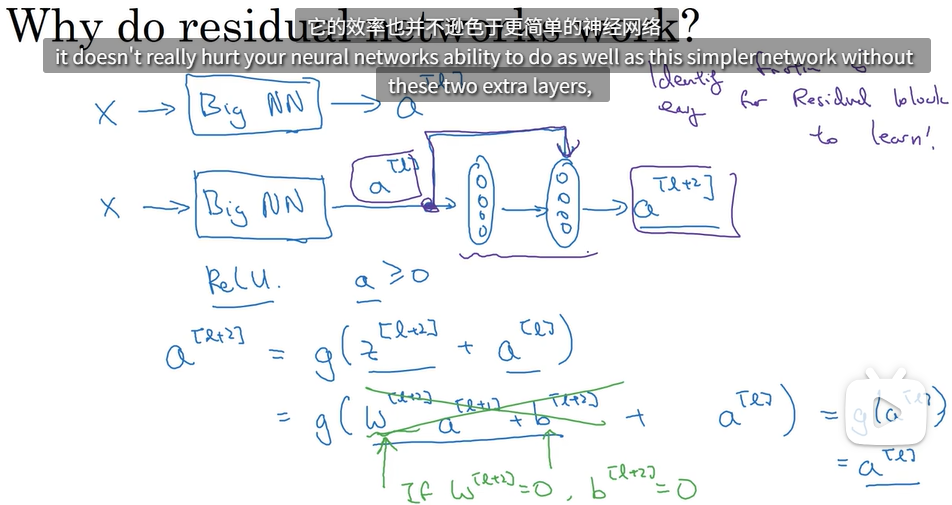 Why do residual networks work?
它的效率也并不逊色于更简单的神经网络
it doesn't really hurt your neural networks ability to do as well as this simpler(network without
these two extra layers,
Identity
easy for Residual block
to learn!
X → Big NN → a^[l]
X → Big NN → a^[l] → → a^[l+2]
ReLU. a ≥ 0
a^[l+2] = g(z^[l+2] + a^[l])
= g(W^[l+2] a^[l+1] + b^[l+2] + a^[l]) = g(a^[l])
= a^[l]
If W^[l+2] = 0, b^[l+2] = 0